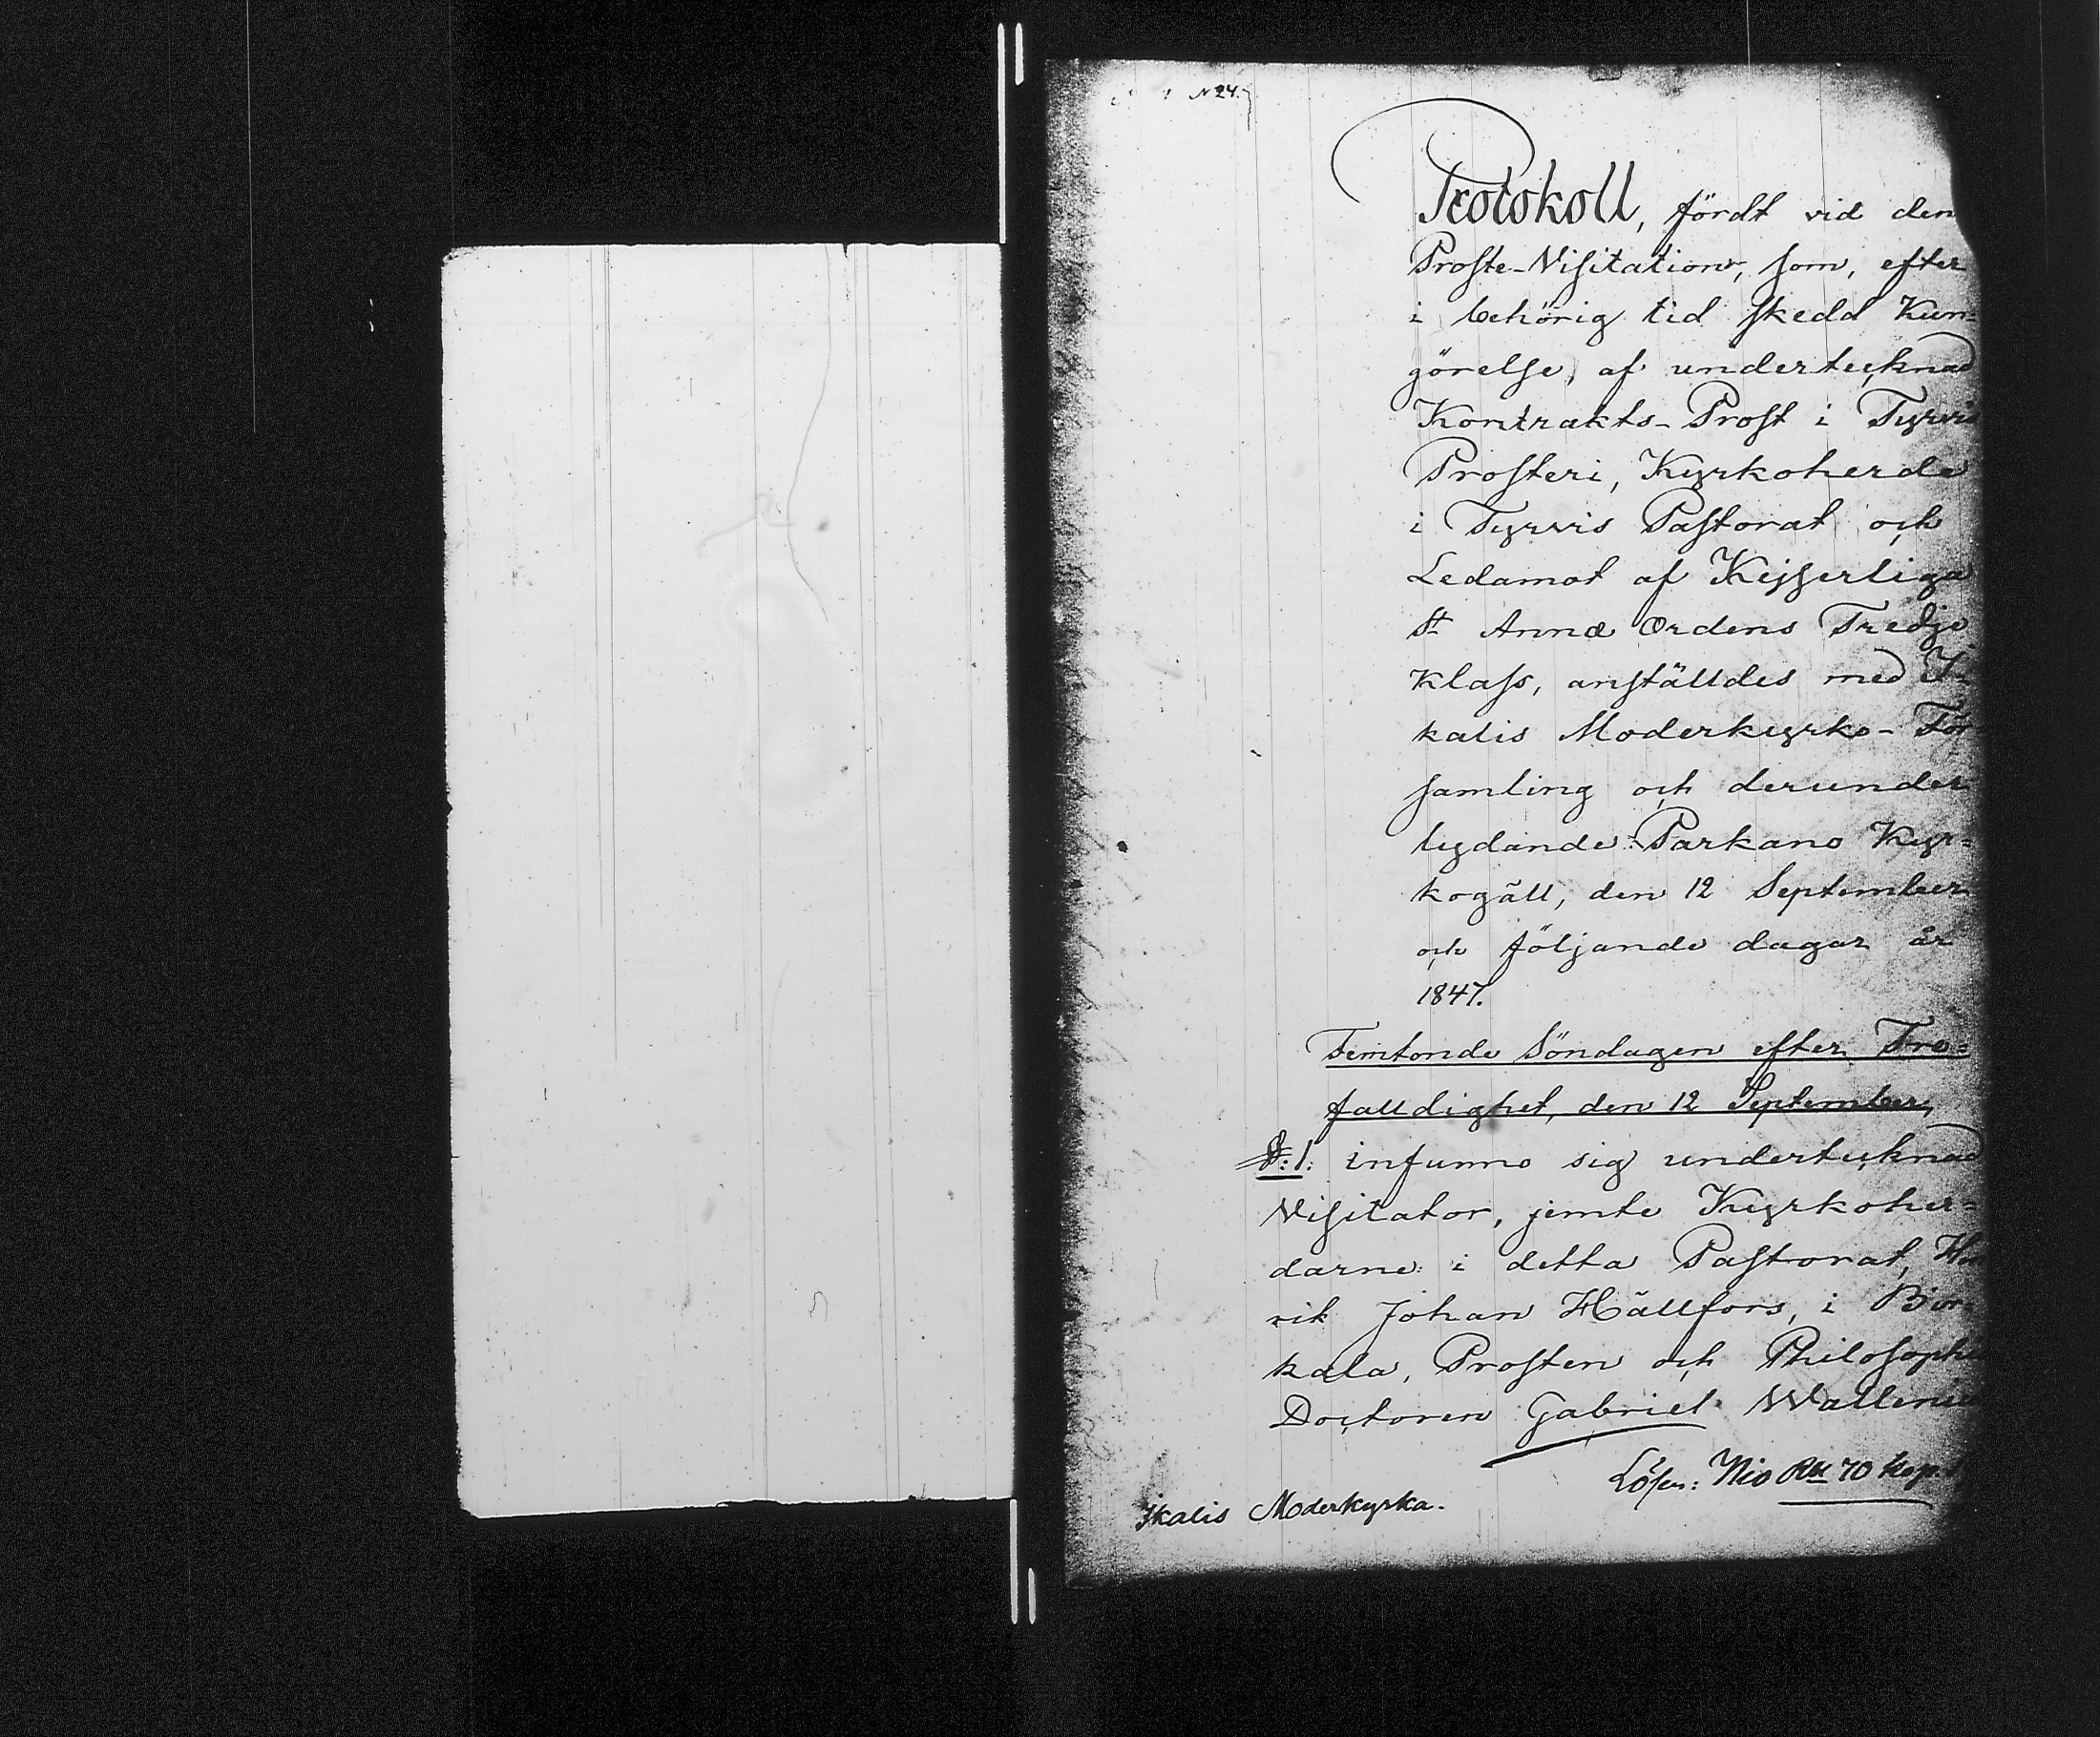 N 24.
Protokoll, fördt vid den
Proste-Visitation, som, efter
i behörig tid skedd Kun=
görelse, af undertecknad
Kontrakts-Prost i Tyrvis
Prosteri, Kyrkoherde
i Tyrvis Pastorat och
Ledamot af Kejserliga
St Annæ Ordens Tredje
Klass, anställdes med I=
kalis Moderkyrko-För
samling och derunder
lydande Parkano Kyr=
kogäll, den 12 September
och följande dagar år
1847.
Femtonde Söndagen efter Tre=
falldighet, den 12 September,
§: 1: infunno sig undertecknad
Visitator, jemte Kyrkoher=
darne i detta Pastorat, Hen
rik Johan Hällfors, i Bjor=
kala, Prosten och Philosophie
Doctoren Gabriel Wallenius
Lösen: Nio Rub 70 kop.
Ikalis Moderkyrka.